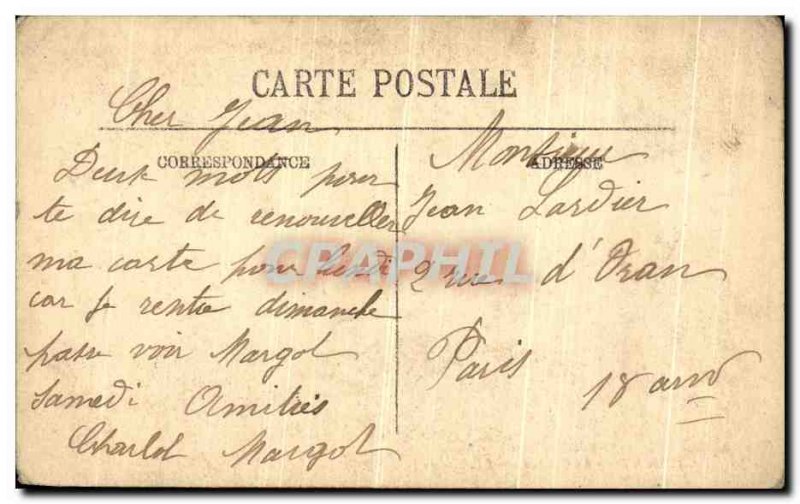 CARTE POSTALE
CORRESPONDANCE
Cher Jean
Deux mots pour
te dire de renouveller
ma carte pour lundi
car je rentre dimanche
passe voir Margot
Samedi Amitiés
Charlot Margot
ADRESSE
Monsieur
Jean Lardier
2 rue d'Oran
Paris
18 arrd
CPAPHIL